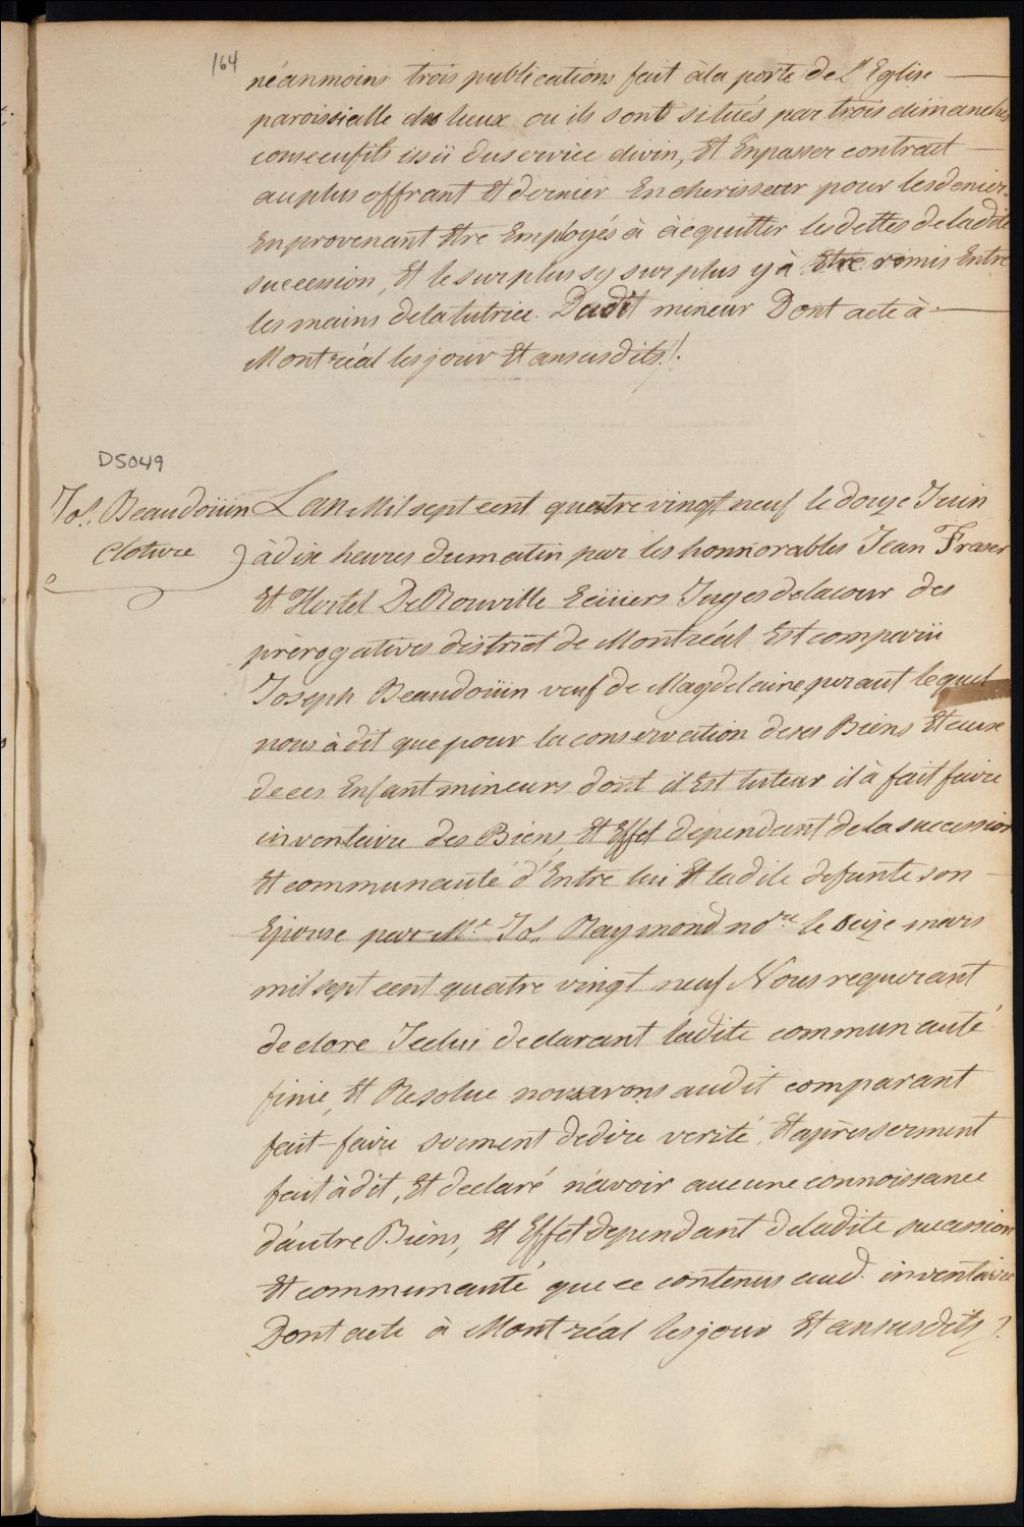 164
néanmoins trois publications fait àla porte de L'Eglise
paroissialle des lieux ou ils sont situés par trois dimanches
consecutifs issü duservice divin, Et Enpasser contract
auplus offrant Et dernier Encherisseur pour lesdeniers
Enprovenant Etre Employés à àcquitter lesdettes deladite
succession, Et lesurplus sy surplus y à Etre remis Entre
les mains delatutrice. Dudit mineur Dont acte à
Montréal lesjour Et ansusdits./.
DS049
Jos. Beaudoüin
Cloture
Lan Mil sept cent quatre vingt neuf le douze Juin
àdix heures dumatin par les honnorables Jean Fraser
Et Hertel DeRouville Ecüiers Juges delacour des
prérogatives district de Montréal Est comparüi
Joseph Beaudoüin veuf de Magdelaine lequel
nous à dit que pour laconservation deses Biens Et ceux
deces Enfant mineurs dont il Est tuteur il à fait faire
inventaire des Biens, Et Effet dependant dela succession
Et communauté d'Entre lui Et ladite defunte son
Epouse par Mr. Jos. Raymond nore le seize mars
mil sept cent quatre vingt neuf Nous requerant
declore Icelui declarant ladite communauté
finie, Et Resolue nousavons audit comparant
fait faire serment dedire verité, Etaprèsserment
fait àdit, Et declaré n'avoir aucune connoissance
d'autre Biens, Et Effet dependant deladite succession
Et communauté que ce contenus aud. inventaire
Dont acte à Montréal lesjour Et ansusdits ?.